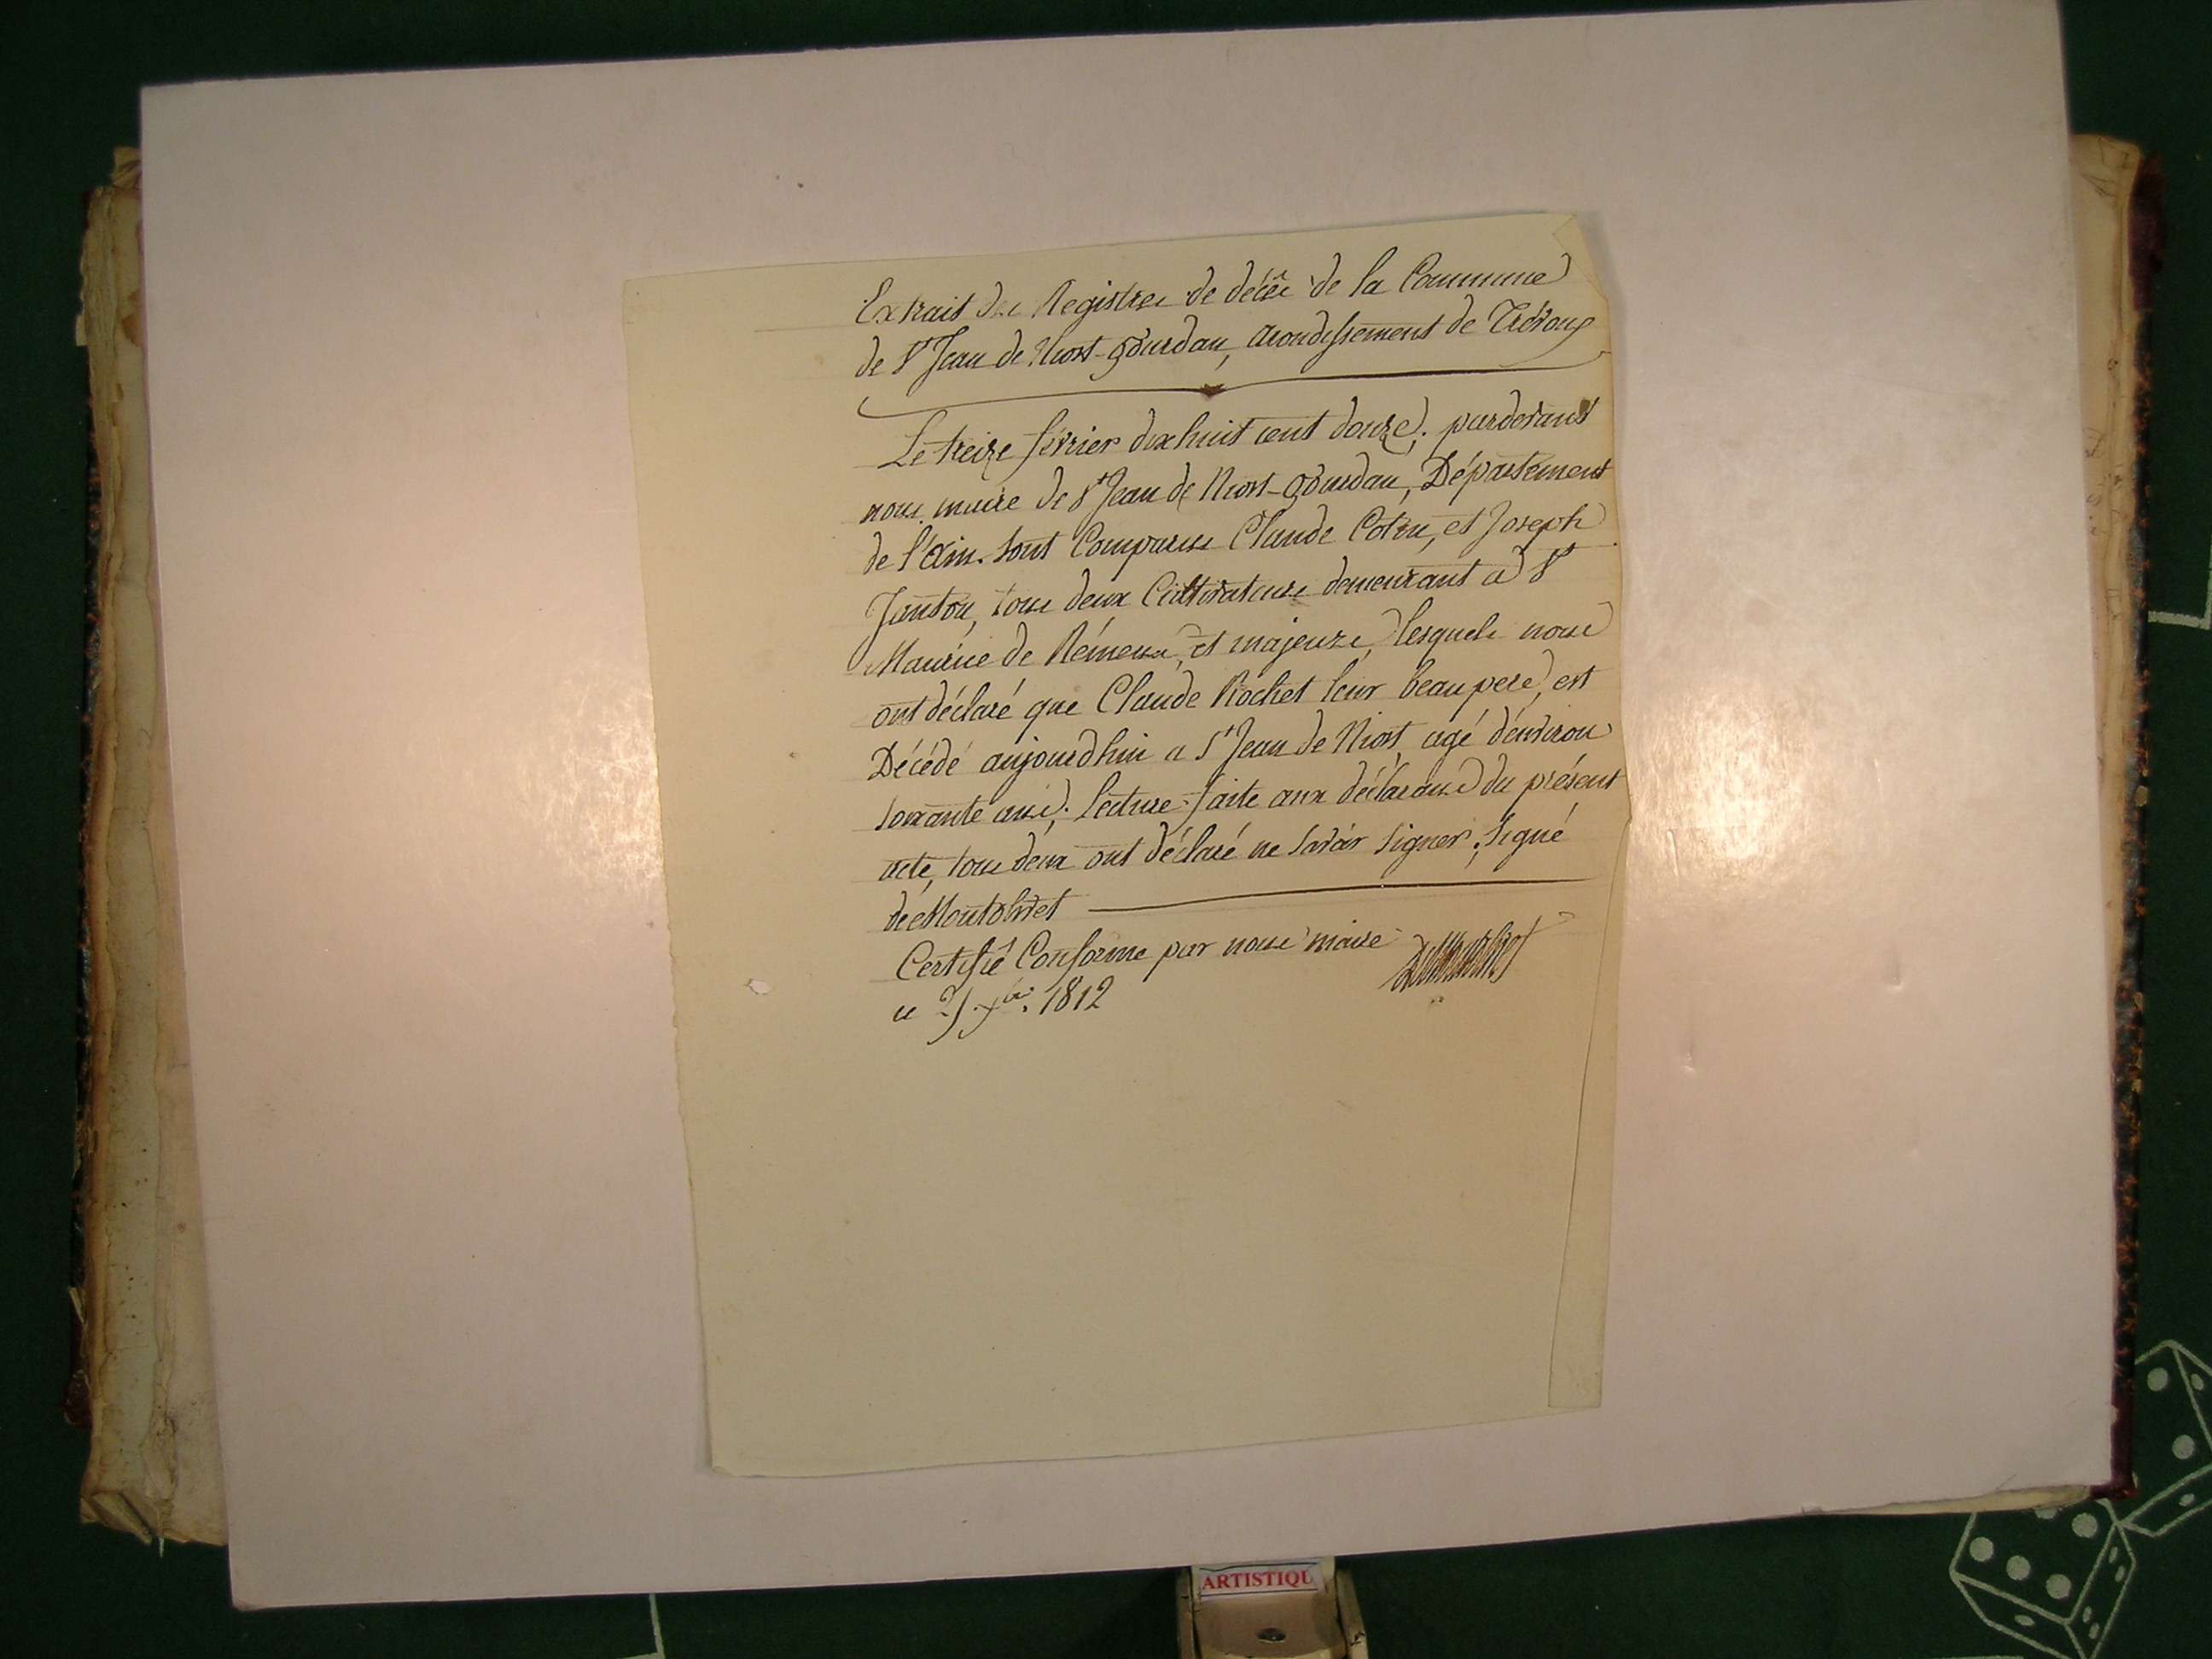 Extrait des Registres de décês de la Commune
de St Jean de Niost-gourdan, arondissement de Trévoux
Le treize février dix huit cent douze, pardevant
nous maire de St Jean de Niost-gourdan, Département
de l'ain. sont Comparus Claude Cotin, et Joseph
Janton, tous deux Cultivateurs demeurant a St
Maurice de Rémens, et majeurs, lesquels nous
ont déclaré que Claude Rochet leur beau pere, est
Décédé aujourdhui a St Jean de Niost, agé d'environ
soixante ans; lecture faite aux déclarans du présent
acte, tous deux ont déclaré ne savoir signer, signé
de Montolivet
Certifié Conforme par nous maire DeMontolivet
ce 1812
ARTISTIQU